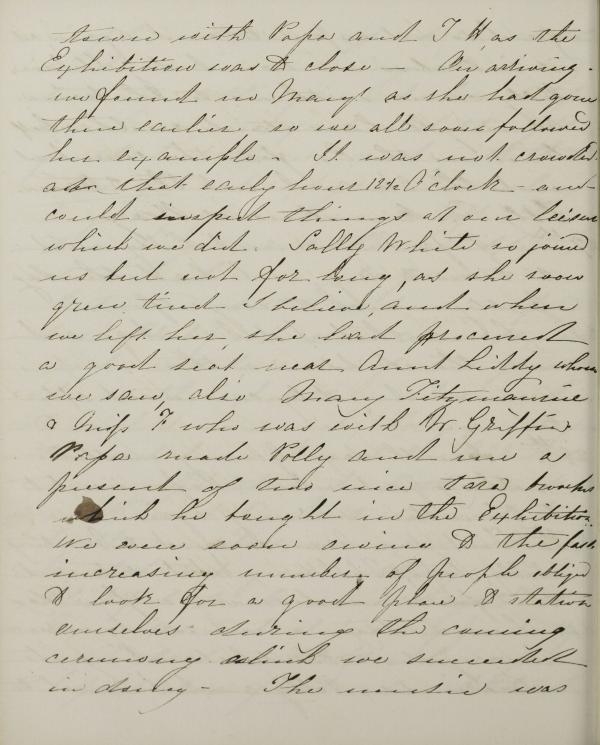 town with Papa and T H as the
Exhibition was to close - On arriving
we found no Mary as she had gone
there earlier, so we all soon followed
her example - It was not crowded
at that early hour 12½ O'clock - and
could inspect things at our leisure
which we did. Sally White so joined
us but not for long, as she soon
grew tired I believe, and when
we left her, she had procured
a good seat near Aunt Liddy whom
we saw, also Mary Fitzmaurice
& Miss F who was with Dr Griffin
Papa made Polly and me a
present of two nice
which he bought in the Exhibition
We were soon owing to the fast
increasing number of people obliged
to look for a good place to station
ourselves during the coming
ceremony which we succeeded
in doing - The music was